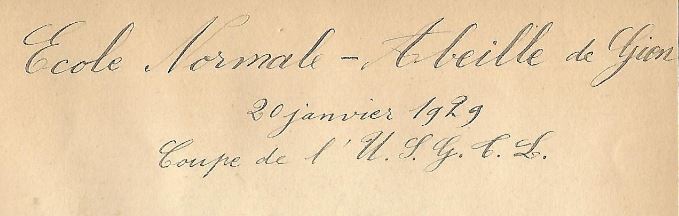 Ecole Normale - Abeille de Gien
20 janvier 1929
Coupe de l'U. S. G. T. L.